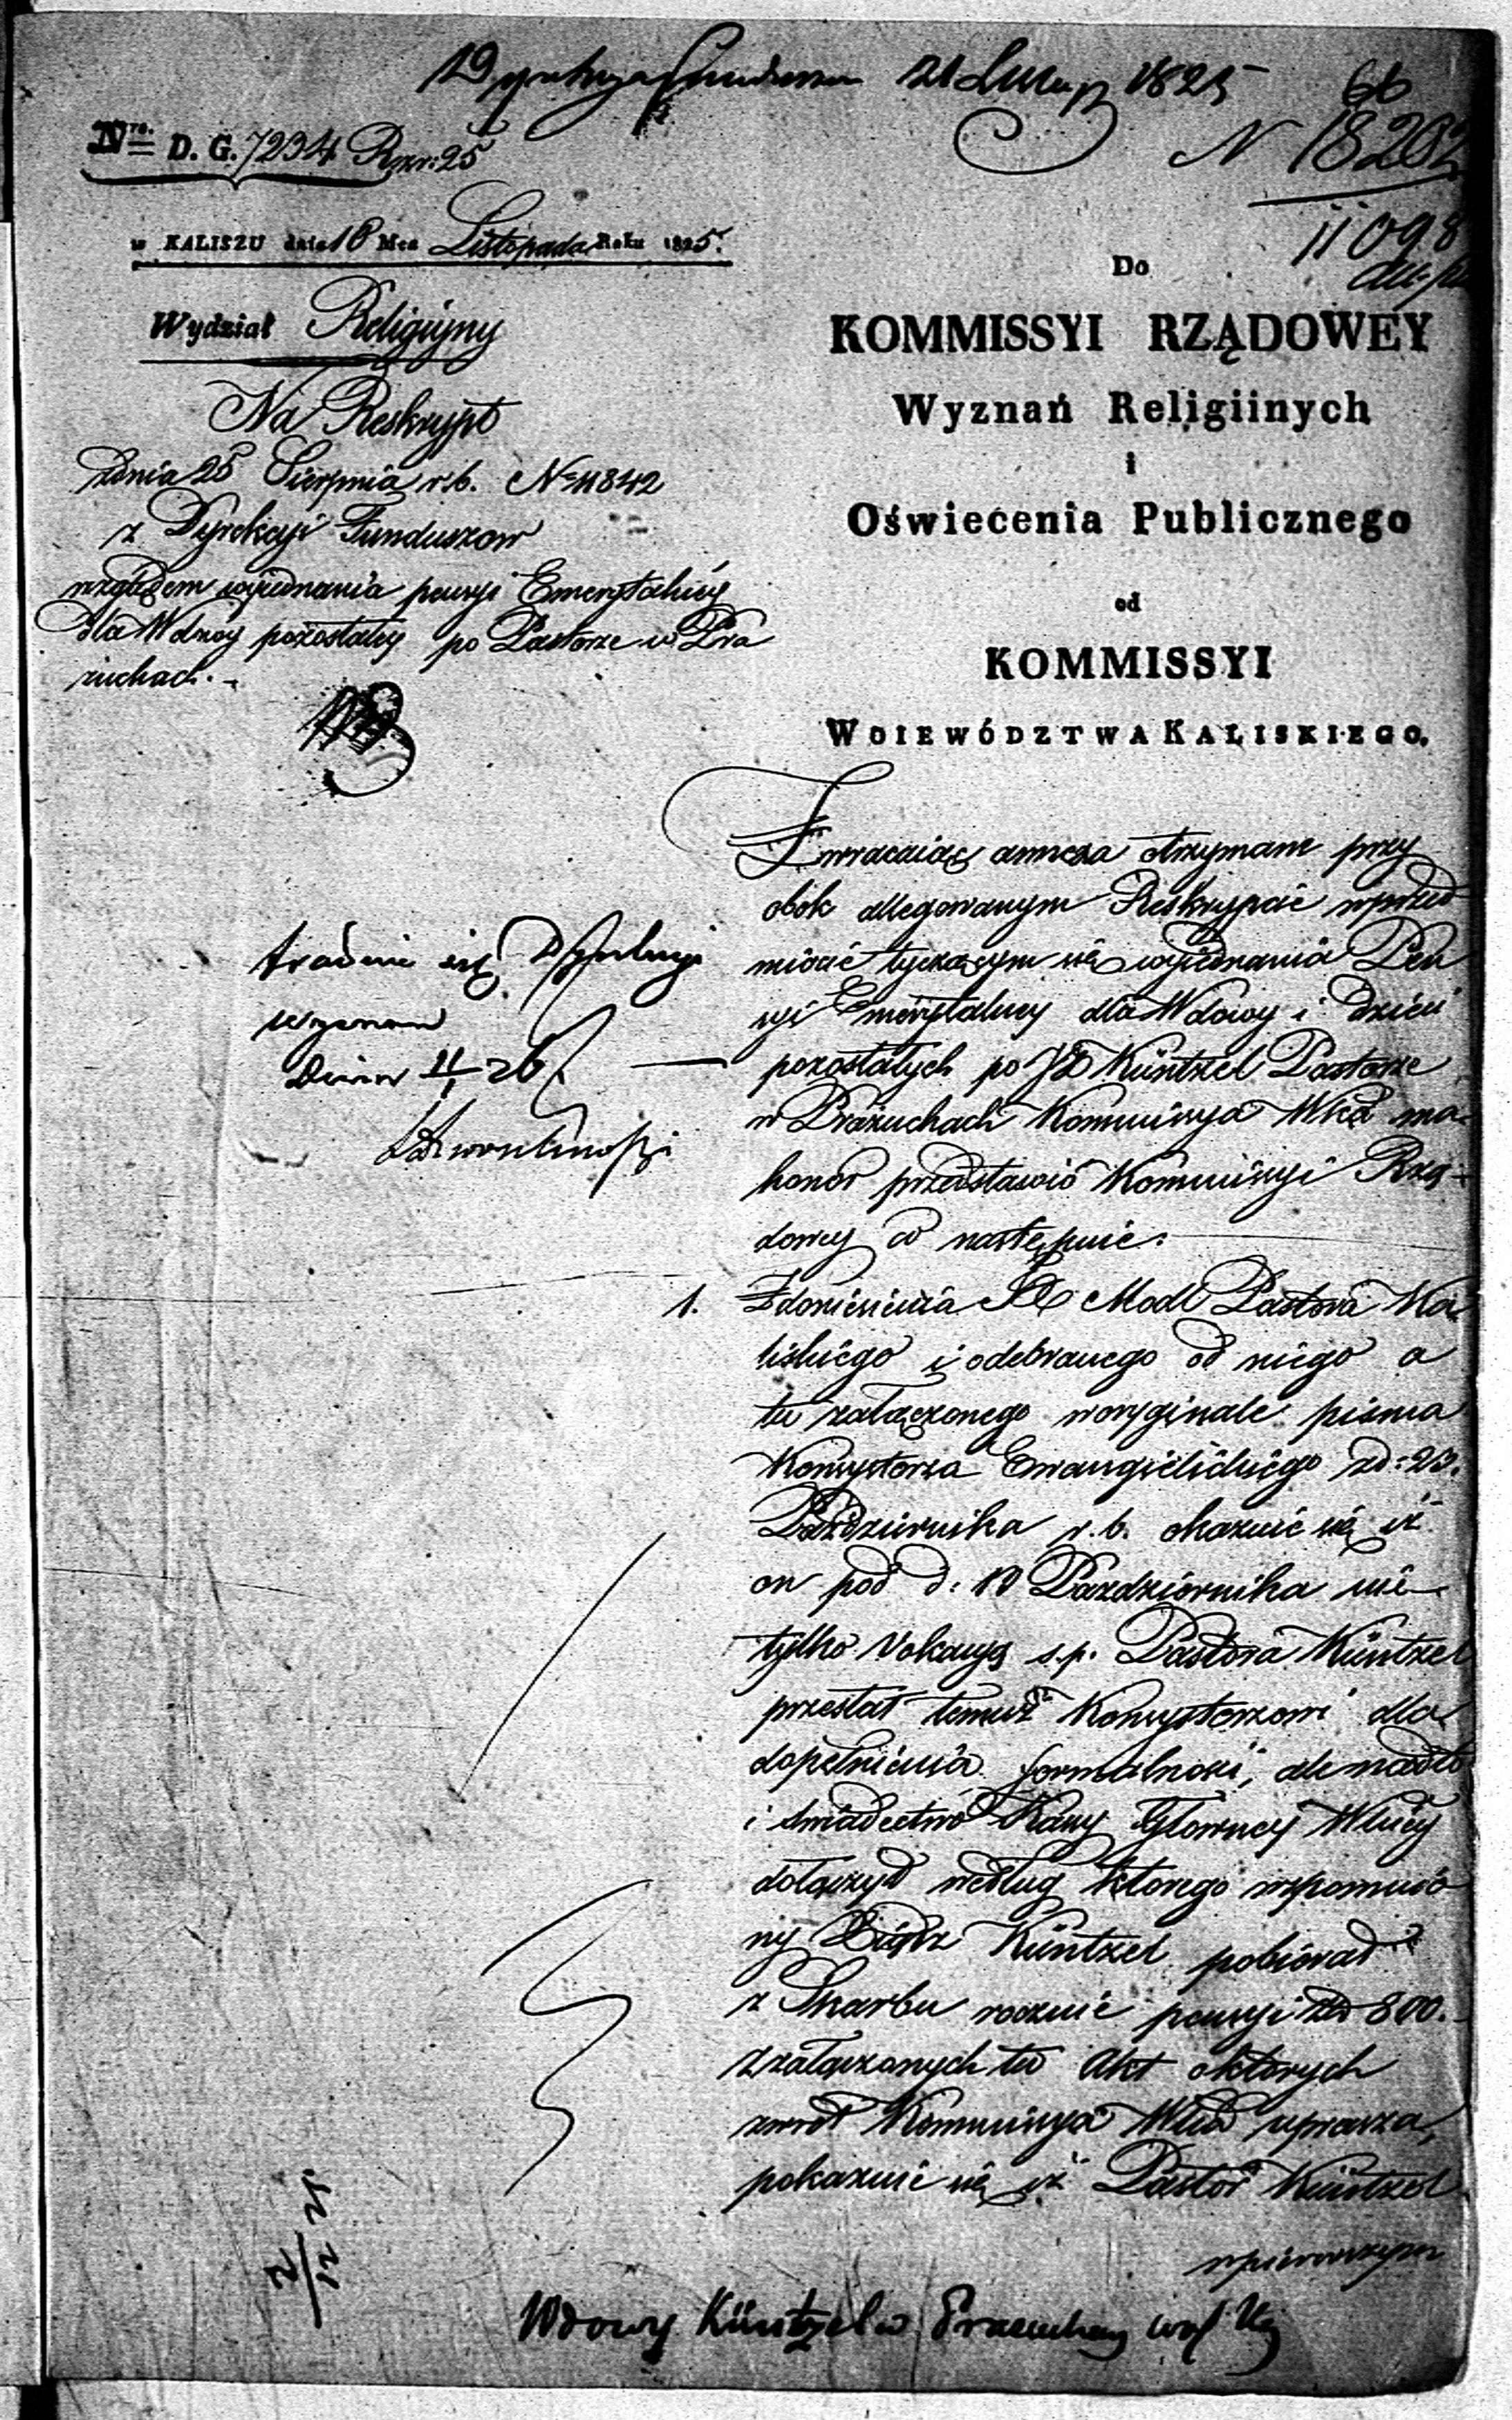 21 1825
66
N 18202
11098
Nro. D. G. 7234 Rzr: 25
w KALISZU dnia 16 Mca Listopada Roku 1825.
Wydział Religijny
Na Reskrypt
zdnia 25 Sierpnia r.b. N 11842
z Dyrekcyi Funduszow
względem wyiednania pensyi Emerytalney
dla Wdowy pozostałey po Pastorze w Pra
żuchach. -
Do
KOMMISSYI RZĄDOWEY
Wyznań Religiinych
i
Oświecenia Publicznego
od
KOMMISSYI
WOIEWÓDZTWA KALISKIEGO.
Zwracaiąc annexa otrzymane przy
obok allegowanym Reskrypcie wprzed
miocie tyczącym się wyiednania Pen
syi Emerytalney dla Wdowy i dzieci
pozostałych po JX Küntzel Pastorze
w Prażuchach Kommissya Wka ma
honor przedstawić Kommissyi Rzą-
dowey co następuie:
1. Zdoniesienia JX Modl Pastora Ka
liskiego i odebranego od niego a
tu załączonego woryginale pisma
Konsystorza Ewangielickiego z d: 23.
Października r.b. okazuie się iż
on pod d: 13 Października nie
tylko Vokacyą s.p. Pastora Küntzel
przesłał temuż Konsystorzowi dla
dopełnienia formalności, ale nadto
i świadectwo Kassy Głowney Wkiey
dołączył według ktorego wspomnio
ny Xiądz Küntzel pobierał
z Skarbu rocznie pensyi Złł 800.-
Z załączonych tu Akt o ktorych
zwrot Kommissya Wka uprasza,
pokazuie się iż Pastor Küntzel
wpierwszym
Dnia 11/1 26
Wdowy Küntzel w